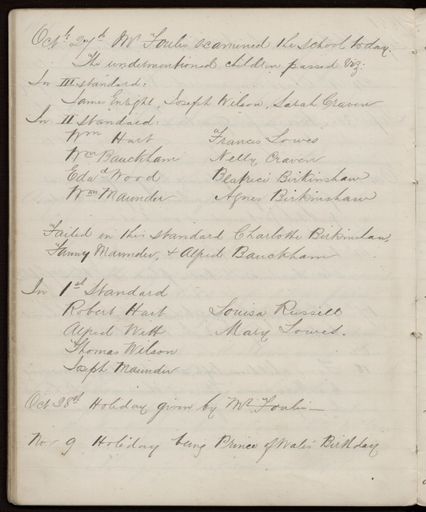 Octr 27th Mr Foulis examined the school today.
The undermentioned children passed viz:
In III standard:
James Enright, Joseph Wilson, Sarah Craven
In II Standard:
Wm Hart Francis Lowes
Wm Bauckham Nelly Craven
Edwd Wood Beatrice Birkinshaw
Wm Maunder Agnes Birkinshaw
Failed in this standard Charlotte Birkinshaw,
Fanny Maunder, & Alfred Bauckham
In 1st Standard
Robert Hart Louisa Russell
Alfred Witt Mary Lowes.
Thomas Wilson
Joseph Maunder
Oct 28th Holiday given by Mr Foulis
Nov 9 Holiday being Prince of Wales Birthday